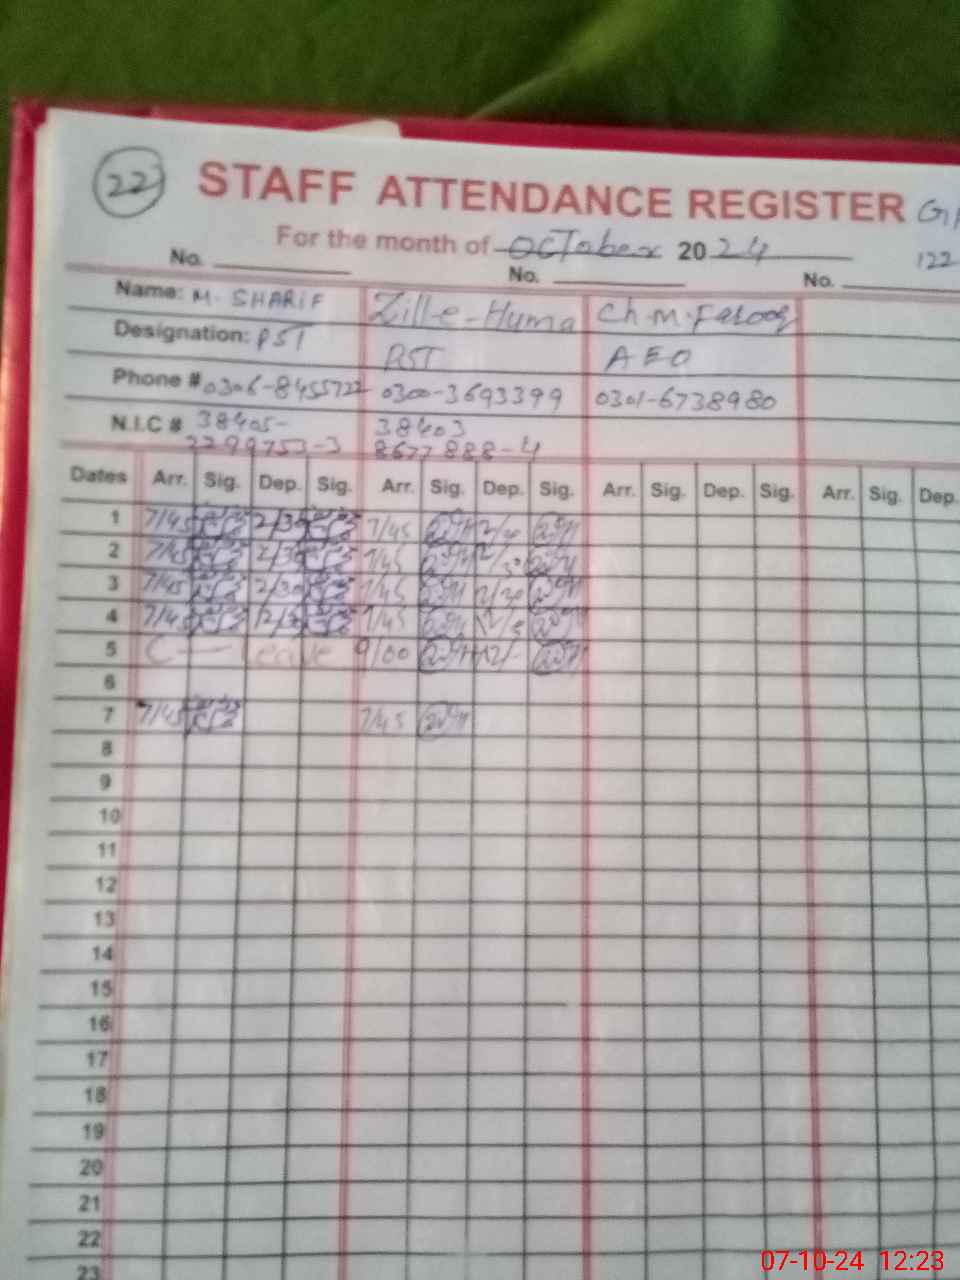 22
STAFF ATTENDANCE REGISTER
For the month of October 2024
122
No. No. No.
Name: M. SHARIF Zill-e-Huma Ch.M.Farooq
Designation: PST PST AEO
Phone # 0306-8455722 0300-3693399 0301-6738980
N.I.C # 38405- 38403
2299753-3 8677888-4
Dates Arr. Sig. Dep. Sig. Arr. Sig. Dep. Sig. Arr. Sig. Dep. Sig. Arr. Sig. Dep.
1 7/45 2/30 7/45
2 7/45 2/30 7/45
3 7/45 2/30 7/45 2/30
4 7/45 7/45
5 C—Leave 9/00 12/-
6
7 7/45 7/45
8
9
10
11
12
13
14
15
16
17
18
19
20
21
22
23
07-10-24 12:23